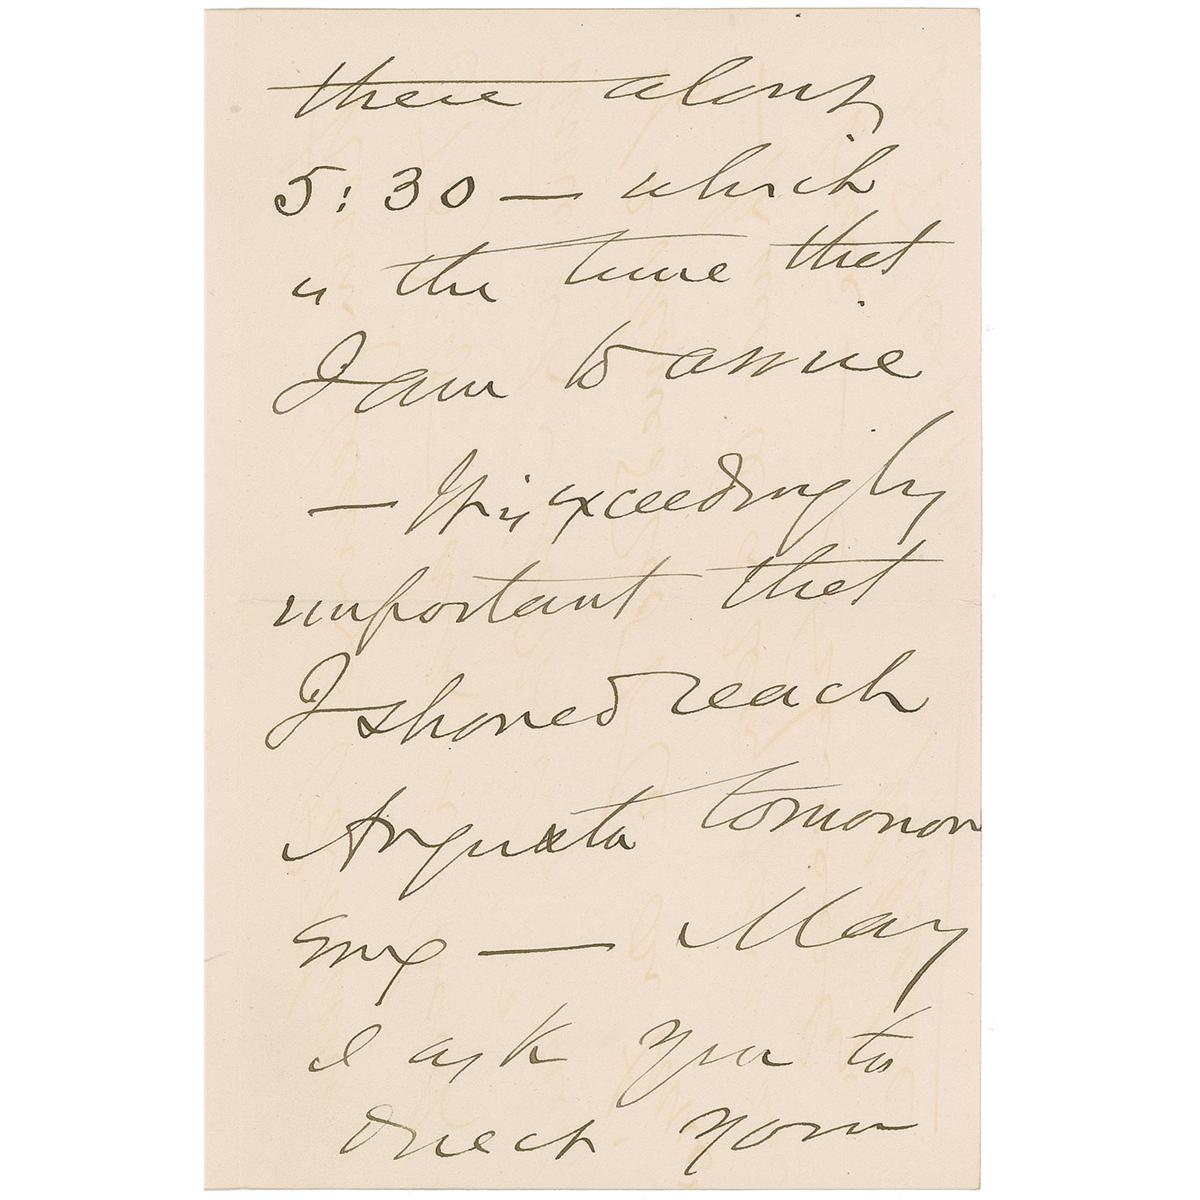 there about
5:30 — which
is the time that
I am to arrive
— It is exceedingly
important that
I should reach
Augusta tomorrow
Eng — May
I ask you to
direct your